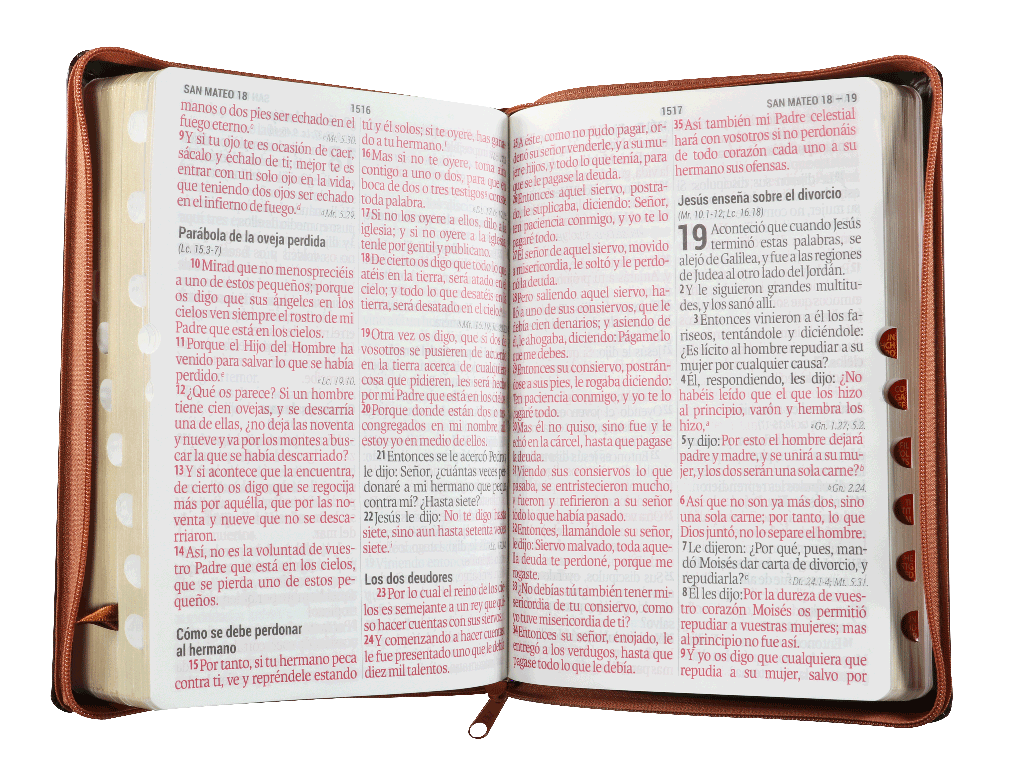 SAN MATEO 18
1516
manos o dos pies ser echado en el
fuego eterno.
Mr. 5.30.
9Y si tu ojo te es ocasión de caer,
sácalo y échalo de ti; mejor te es
entrar con un solo ojo en la vida,
que teniendo dos ojos ser echado
en el infierno de fuego.d
Mt. 5.29.
Parábola de la oveja perdida
(Lc. 15.3-7)
10Mirad que no menospreciéis
a uno de estos pequeños; porque
os digo que sus ángeles en los
cielos ven siempre el rostro de mi
Padre que está en los cielos.
11Porque el Hijo del Hombre ha
venido para salvar lo que se había
perdido.e
eLc. 19.10.
12¿Qué os parece? Si un hombre
tiene cien ovejas, y se descarría
una de ellas, ¿no deja las noventa
y nueve y va por los montes a bus-
car la que se había descarriado?
13Y si acontece que la encuentra,
de cierto os digo que se regocija
más por aquélla, que por las no-
venta y nueve que no se desca-
rriaron.
14Así, no es la voluntad de vues-
tro Padre que está en los cielos,
que se pierda uno de estos pe-
queños.
Cómo se debe perdonar
al hermano
15Por tanto, si tu hermano peca
contra ti, ve y repréndele estando
tú y él solos; si te oyere, has gana-
do a tu hermano.f
16Mas si no te oyere, toma aún
contigo a uno o dos, para que en
boca de dos o tres testigos conste
toda palabra.
17Si no los oyere a ellos, dilo a la
iglesia; y si no oyere a la iglesia,
tenle por gentil y publicano.
18De cierto os digo que todo lo que
atéis en la tierra, será atado en el
cielo; y todo lo que desatéis en la
tierra, será desatado en el cielo.
19Otra vez os digo, que si dos de
vosotros se pusieren de acuerdo
en la tierra acerca de cualquiera
cosa que pidieren, les será hecho
por mi Padre que está en los cielos.
20Porque donde están dos o tres
congregados en mi nombre, allí
estoy yo en medio de ellos.
21Entonces se le acercó Pedro y
le dijo: Señor, ¿cuántas veces per-
donaré a mi hermano que peque
contra mí? ¿Hasta siete?
22Jesús le dijo: No te digo hasta
siete, sino aun hasta setenta veces
siete.
Los dos deudores
23Por lo cual el reino de los cie-
los es semejante a un rey que qui-
so hacer cuentas con sus siervos.
24Y comenzando a hacer cuentas,
le fue presentado uno que le debía
diez mil talentos.
1517
SAN MATEO 18 – 19
A éste, como no pudo pagar, or-
denó su señor venderle, y a su mu-
jer e hijos, y todo lo que tenía, para
que se le pagase la deuda.
Entonces aquel siervo, postra-
do, le suplicaba, diciendo: Señor,
ten paciencia conmigo, y yo te lo
pagaré todo.
El señor de aquel siervo, movido
a misericordia, le soltó y le perdo-
nó la deuda.
Pero saliendo aquel siervo, ha-
lló a uno de sus consiervos, que le
debía cien denarios; y asiendo de
él, le ahogaba, diciendo: Págame lo
que me debes.
Entonces su consiervo, postrán-
dose a sus pies, le rogaba diciendo:
Ten paciencia conmigo, y yo te lo
pagaré todo.
Mas él no quiso, sino fue y le
echó en la cárcel, hasta que pagase
la deuda.
Viendo sus consiervos lo que
pasaba, se entristecieron mucho,
y fueron y refirieron a su señor
todo lo que había pasado.
Entonces, llamándole su señor,
le dijo: Siervo malvado, toda aque-
lla deuda te perdoné, porque me
rogaste.
¿No debías tú también tener mi-
sericordia de tu consiervo, como
yo tuve misericordia de ti?
Entonces su señor, enojado, le
entregó a los verdugos, hasta que
pagase todo lo que le debía.
35Así también mi Padre celestial
hará con vosotros si no perdonáis
de todo corazón cada uno a su
hermano sus ofensas.
Jesús enseña sobre el divorcio
(Mr. 10.1-12; Lc. 16.18)
19 Aconteció que cuando Jesús
terminó estas palabras, se
alejó de Galilea, y fue a las regiones
de Judea al otro lado del Jordán.
2Y le siguieron grandes multitu-
des, y los sanó allí.
3Entonces vinieron a él los fa-
riseos, tentándole y diciéndole:
¿Es lícito al hombre repudiar a su
mujer por cualquier causa?
4Él, respondiendo, les dijo: ¿No
habéis leído que el que los hizo
al principio, varón y hembra los
hizo,a
aGn. 1.27; 5.2.
5y dijo: Por esto el hombre dejará
padre y madre, y se unirá a su mu-
jer, y los dos serán una sola carne?b
bGn. 2.24.
6Así que no son ya más dos, sino
una sola carne; por tanto, lo que
Dios juntó, no lo separe el hombre.
7Le dijeron: ¿Por qué, pues, man-
dó Moisés dar carta de divorcio, y
repudiarla?c
cDt. 24.1-4; Mt. 5.31.
8Él les dijo: Por la dureza de vues-
tro corazón Moisés os permitió
repudiar a vuestras mujeres; mas
al principio no fue así.
9Y yo os digo que cualquiera que
repudia a su mujer, salvo por